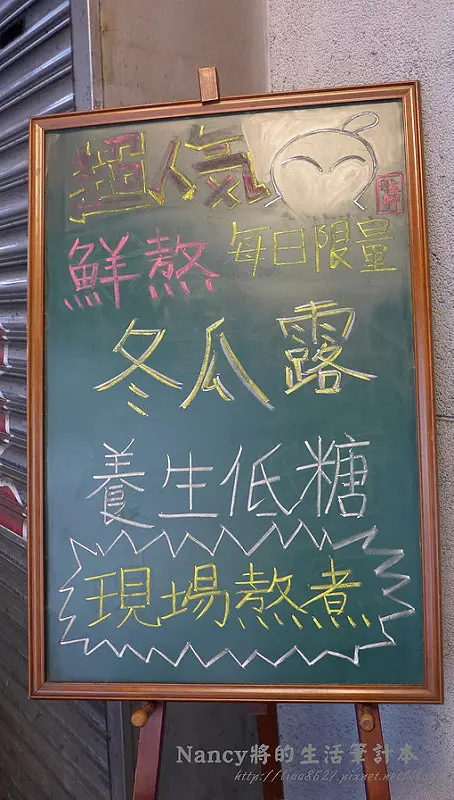 超人氣
鮮熬 每日限量
冬瓜露
養生低糖
現場熬煮
Nancy將的生活筆計本